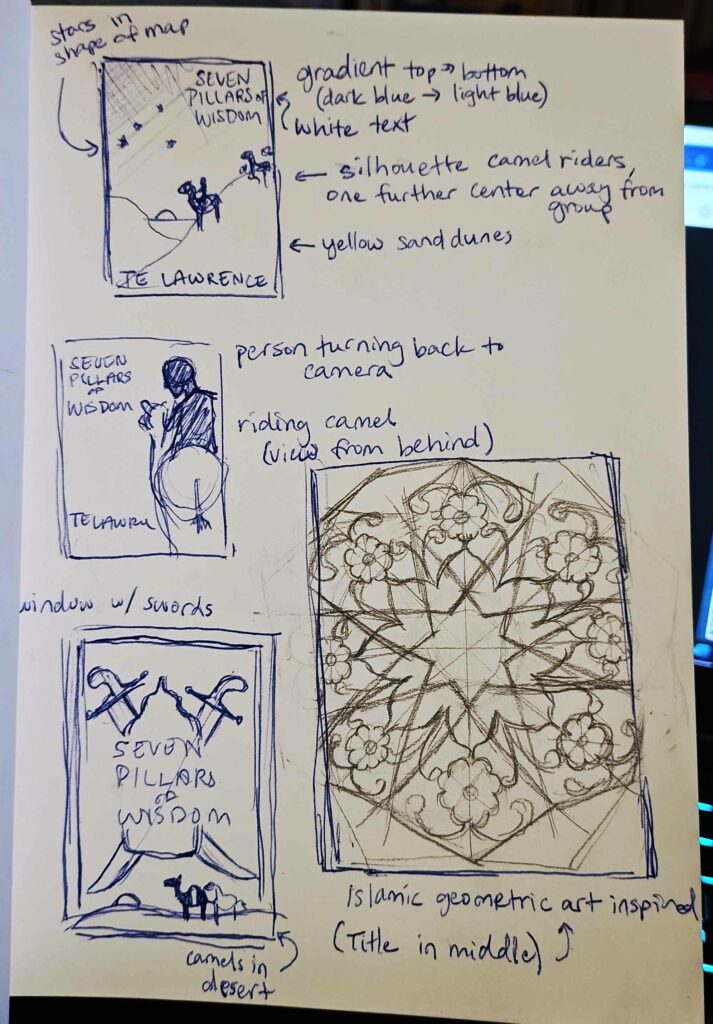 stars in
shape of map
SEVEN
PILLARS OF
WISDOM
gradient top → bottom
(dark blue → light blue)
white text
← silhouette camel riders,
one further center away from
group
← yellow sand dunes
TE LAWRENCE
SEVEN
PILLARS
OF
WISDOM
person turning back to
camera
riding camel
(view from behind)
TE LAWRE
window w/ swords
SEVEN
PILLARS
OF
WISDOM
camels in
desert
Islamic geometric art inspired
(Title in middle)